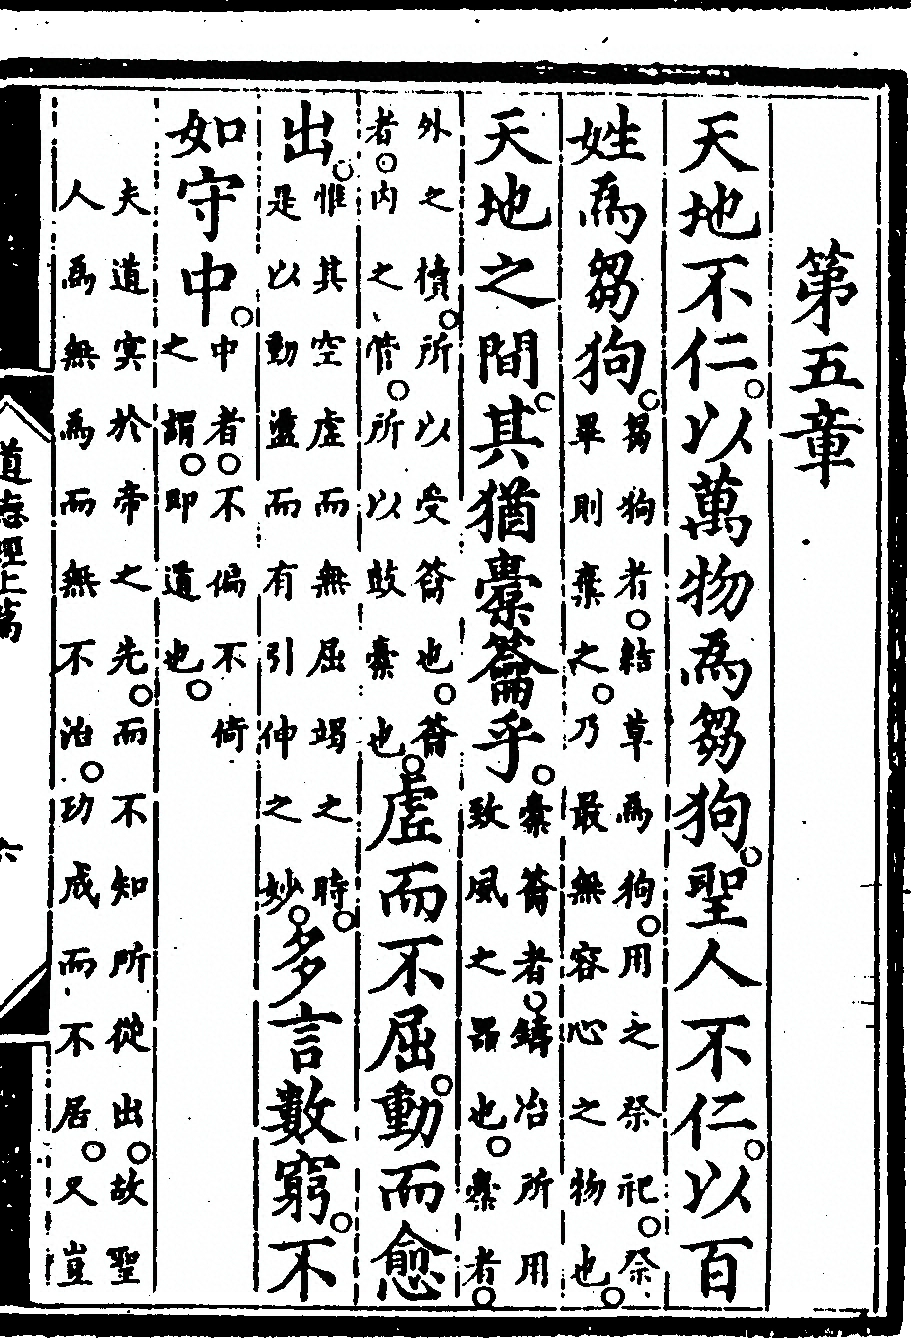 第五章
天地不仁。以萬物為芻狗。聖人不仁。以百
姓為芻狗。
芻狗者。結草為狗。用之祭祀。祭
畢則棄之。乃最無容心之物也。
天地之間。其猶橐籥乎。
橐籥者。鑄冶所用
致風之器也。橐者。
外之櫝。所以受籥也。籥
者。內之管。所以鼓橐也。
虛而不屈。動而愈
出。
惟其空虛而無屈竭之時。
是以動盪而有引伸之妙。
多言數窮。不
如守中。
中者。不偏不倚
之謂。即道也。
夫道冥於帝之先。而不知所從出。故聖
人為無為而無不治。功成而不居。又豈
道悳經上篇
六